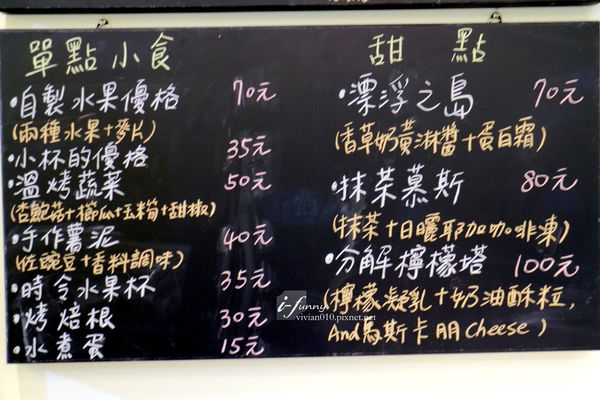 單點小食
·自製水果優格 70元
(兩種水果+麥片)
·小杯的優格 35元
·溫烤蔬菜 50元
(杏鮑菇+櫛瓜+玉米筍+甜椒)
·手作薯泥 40元
(佐豌豆+香料調味)
·時令水果杯 35元
·烤焙根 30元
·水煮蛋 15元
甜點
·漂浮之島 70元
(香草奶黃淋醬+蛋白霜)
·抹茶慕斯 80元
(抹茶+日曬耶加咖啡凍)
·分解檸檬塔 100元
(檸檬凝乳+奶油酥粒,
And馬斯卡朋Cheese)
i-funny
vivian010.pixnet.net